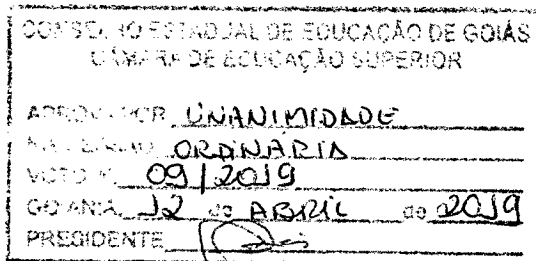 CONSELHO ESTADUAL DE EDUCAÇÃO DE GOIÁS
CÂMARA DE EDUCAÇÃO SUPERIOR
APROVADO POR UNANIMIDADE
NA SESSÃO ORDINARIA
VOTO N. 09/2019
GOIÂNIA, 12 de ABRIL de 2019
PRESIDENTE